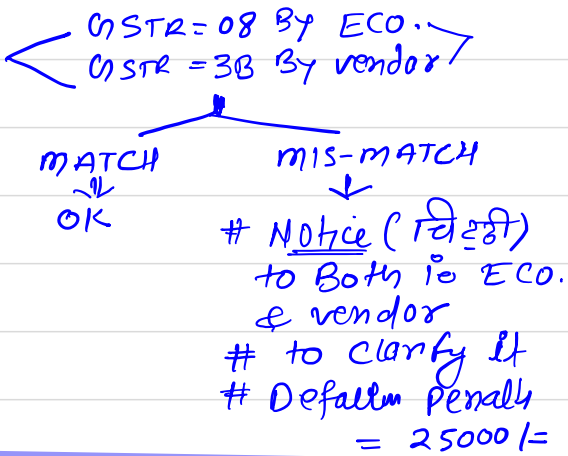 GSTR = 08 By ECO.
GSTR = 3B By vendor
MATCH
MIS-MATCH
OK
# Notice (चिट्ठी)
to Both ie ECO.
& vendor
# to clarify it
# Penalty
= 25000/=